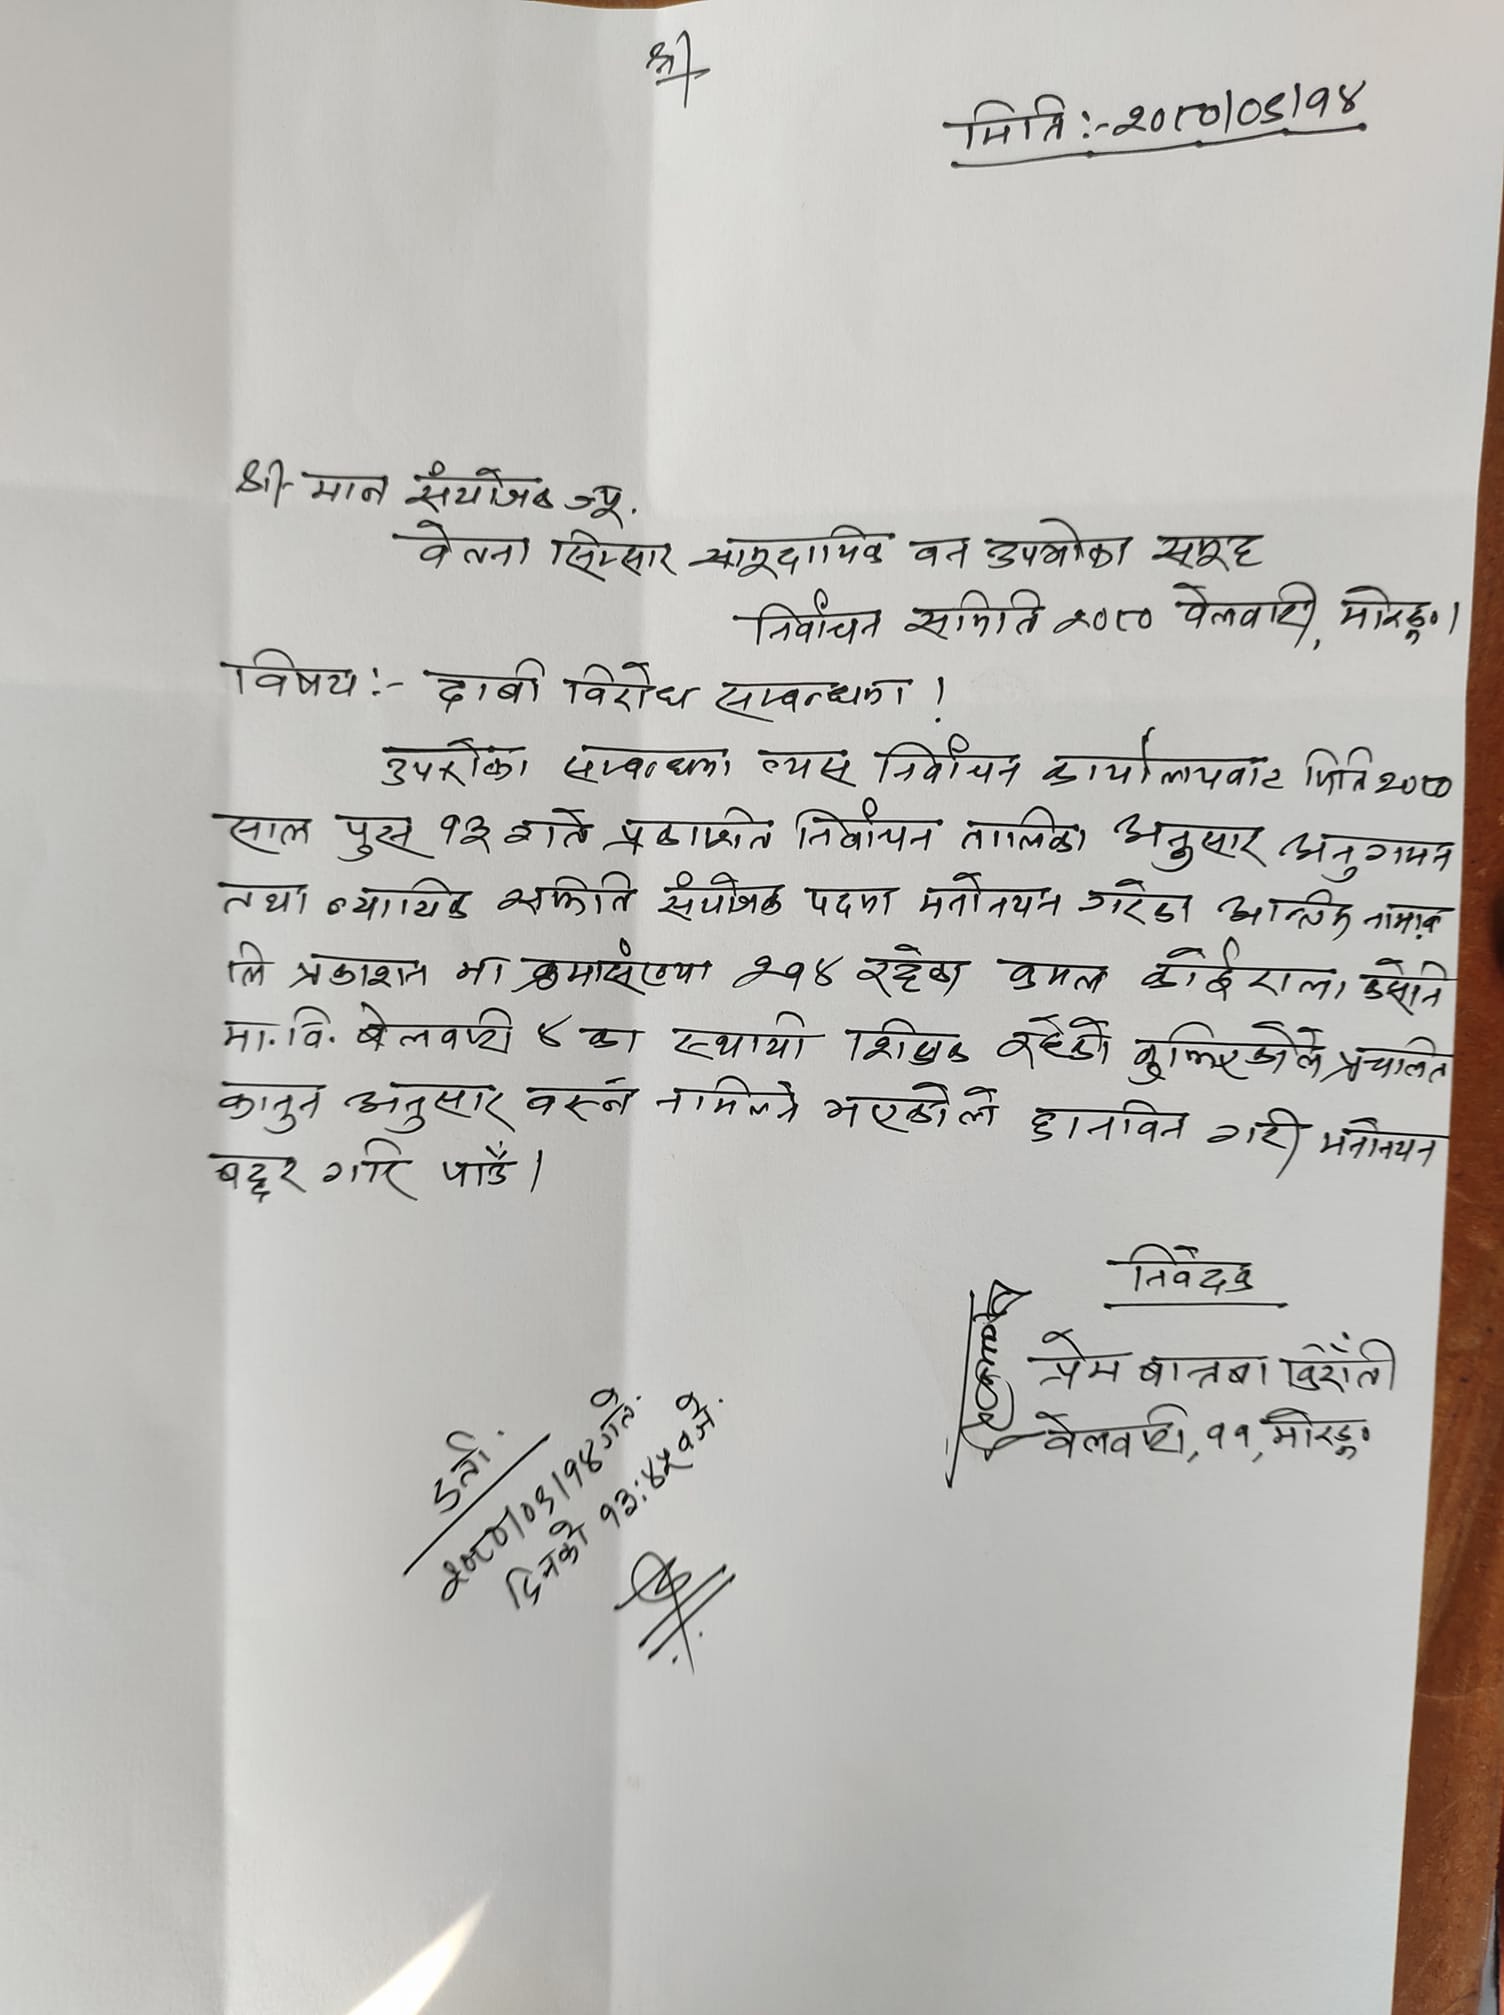 श्री
मिति :- २०८०/०९/१४
श्री मान संयोजक ज्यू.
वेतना सिमसार सामुदायिक वन उपभोक्ता समूह
निर्वाचन समिति २०८० वेलवारी, मोरङ्ग।
विषय :- दाबी विरोध सम्बन्धमा !
उपरोक्त सम्बन्धमा त्यस निर्वाचन कार्यालयवाट मिति २०८०
साल पुस १३ गते प्रकाशित निर्वाचन तालिका अनुसार अनुगमन
तथा न्यायिक समिति संयोजक पदमा मनोनयन गरेका अन्तिम नामाव
लि प्रकाशन मा क्रमासंख्या २१४ रहेका कुमल कोईराला
मा. वि. बेलवारी ४ का स्थायी शिक्षक रहेको बुझिएकोले प्रचालित
कानुन अनुसार वस्न नामिल्ने भएकोले छानविन गरी मनोनयन
बद्दर गरि पाउँ।
निवेदक
प्रेम बान्तबा किराँती
वेलवारी, ११, मोरङ्ग
दर्ता.
२०८०/०९/१४ गते.
दिनको १३:४५ वजे.